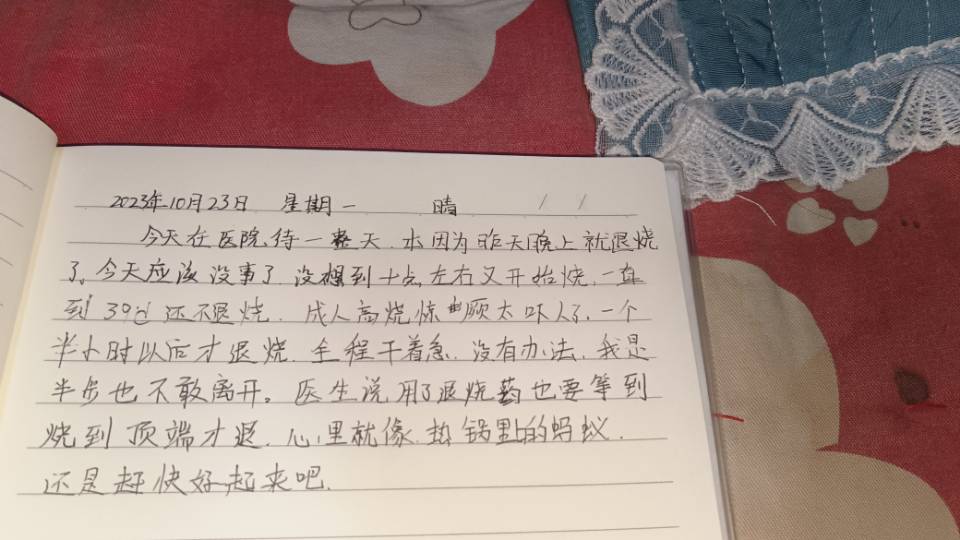 2023年10月23日 星期一 晴
今天在医院待一整天.本因为昨天晚上就退烧
了,今天应该没事了.没想到十点左右又开始烧.一直
到39℃还不退烧.成人高烧惊 厥太吓人了.一个
半小时以后才退烧.全程干着急.没有办法.我是
半步也不敢离开。医生说用了退烧药也要等到
烧到顶端才退.心里就像热锅里的蚂蚁.
还是赶快好起来吧.